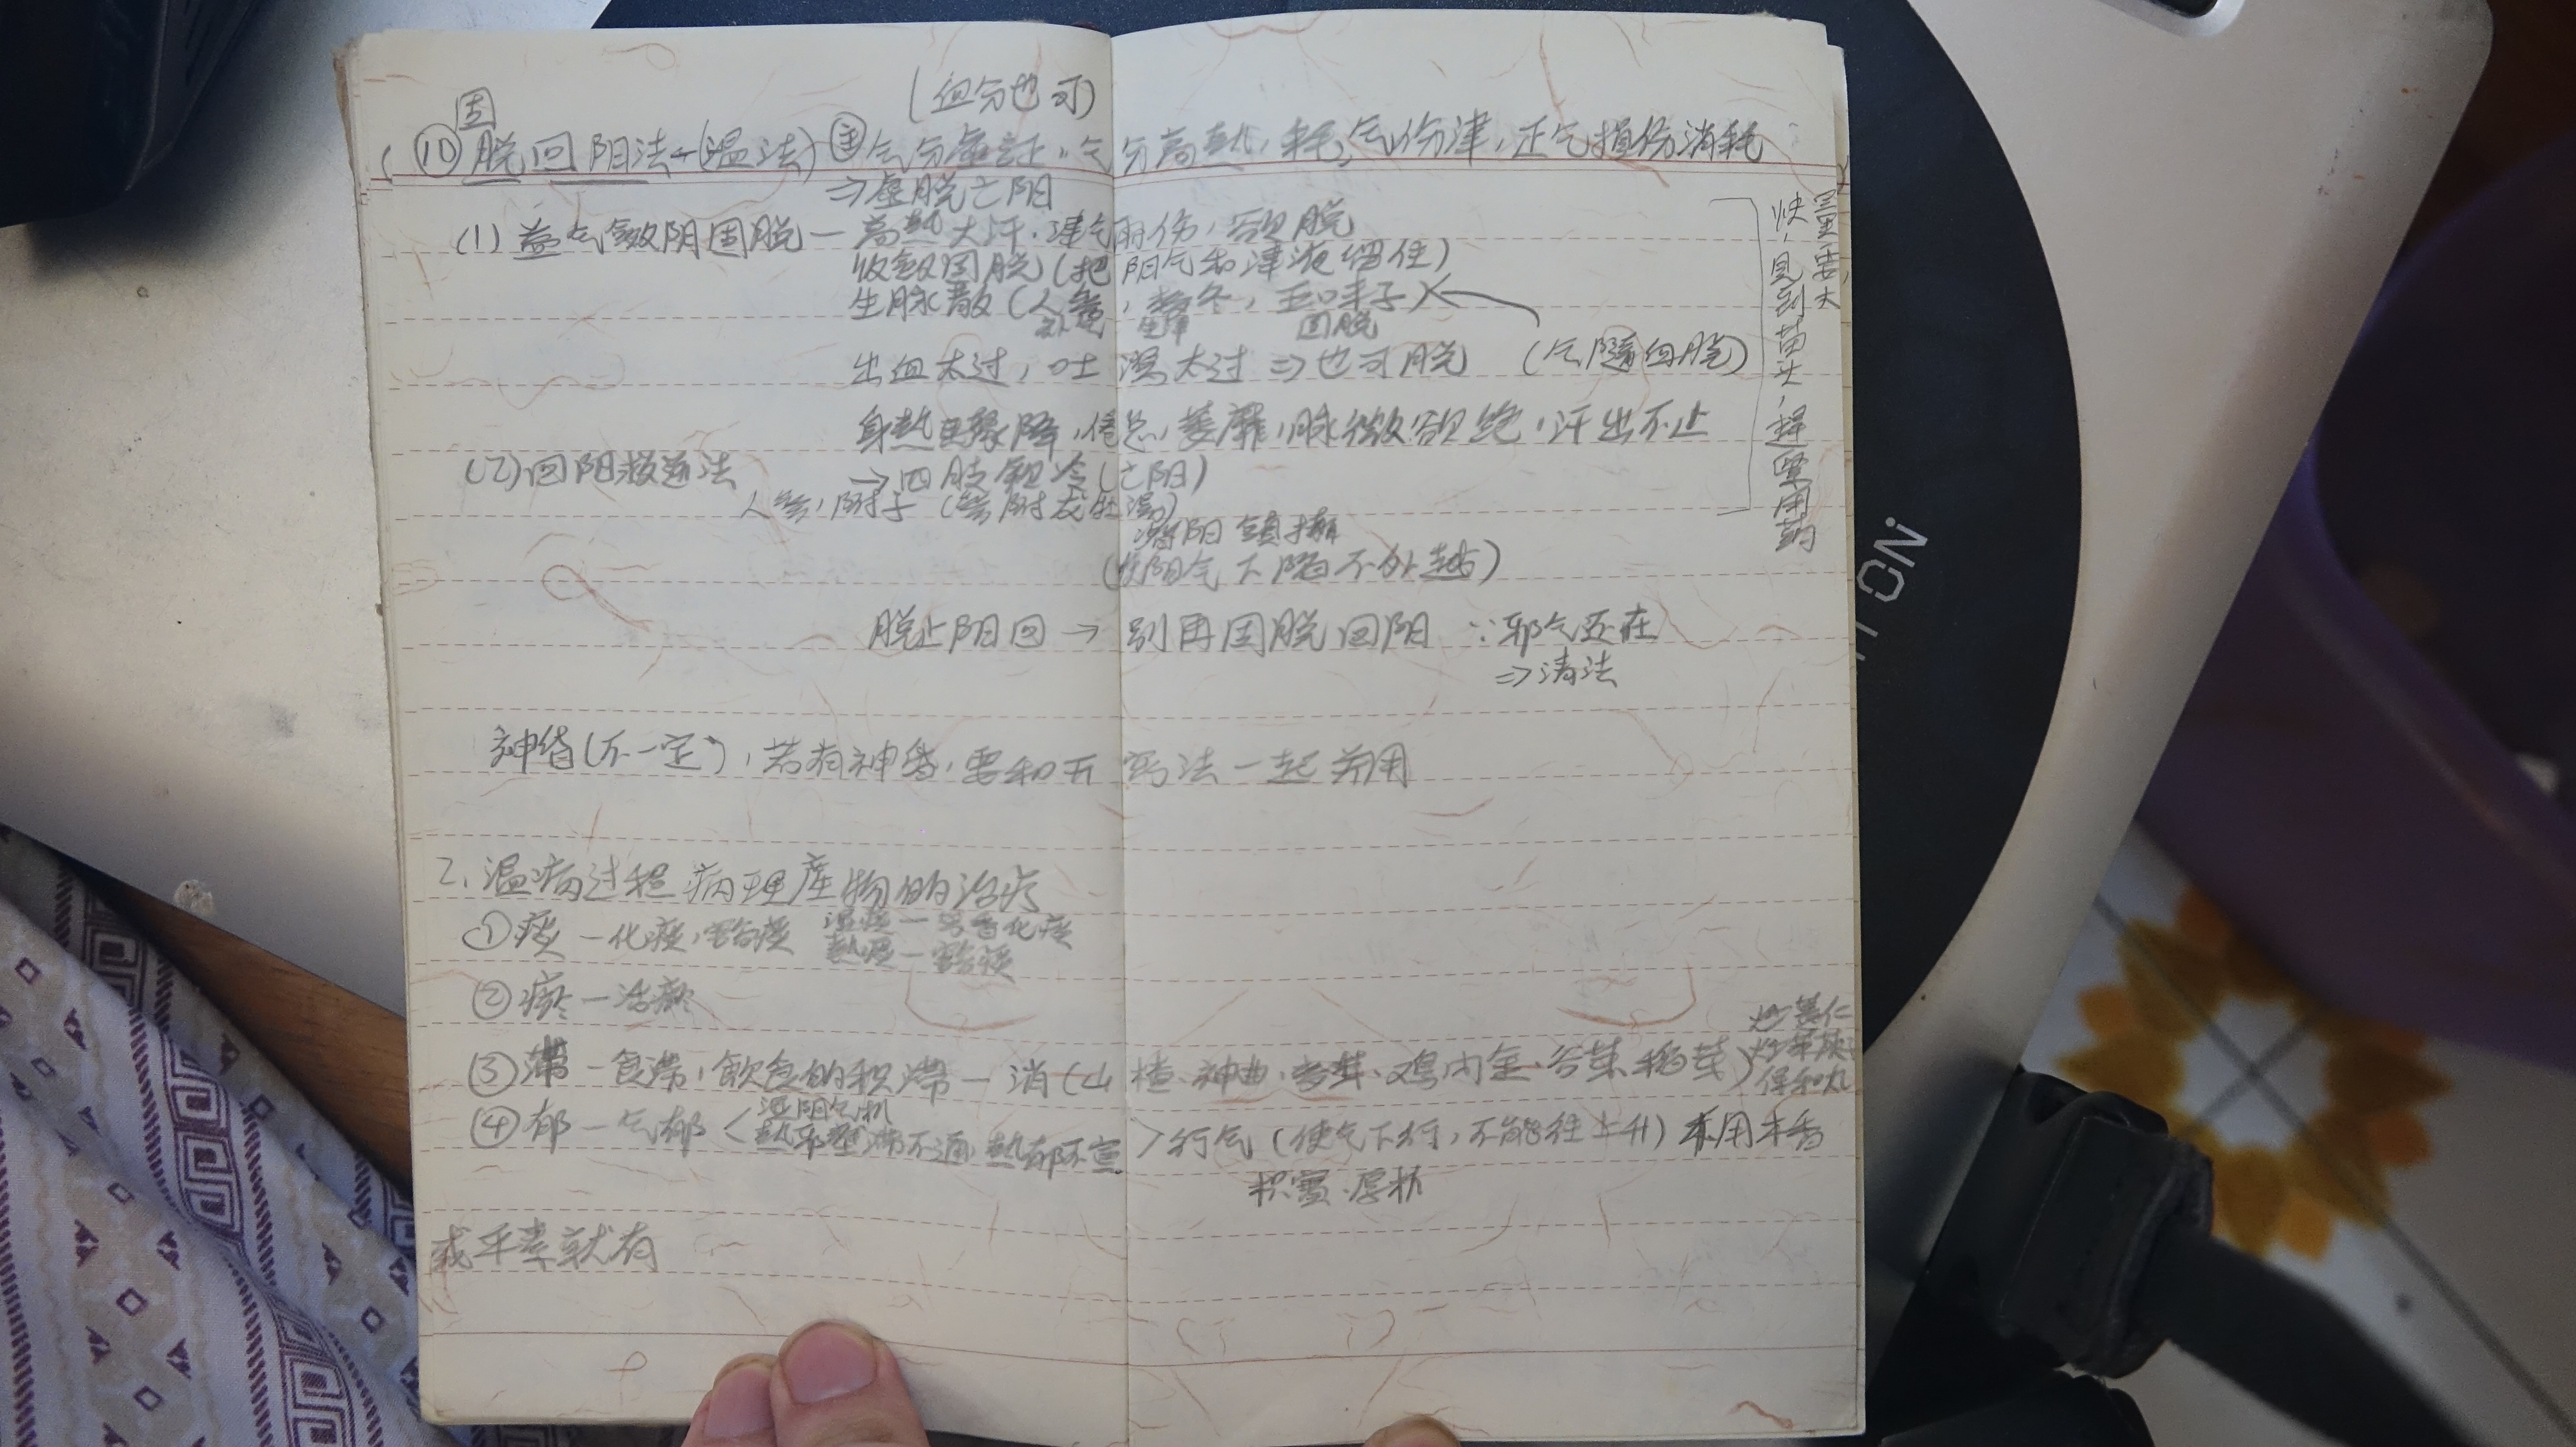 (血分也可)
固
(⑩脱回阳法←(温法) ㊟气分虚証，气分高熱，耗气伤津，正气損伤消耗
⇒虚脱亡阳
(1)益气敛阴固脱—高熱大汗，津气兩伤，欲脱
收敛固脱(把阳气和津液留住)
生脉散(人參，麥冬，五味子)
补气 生津 固脱
出血太过，吐瀉太过⇒也可脱 (气隨血脱)
身熱驟降，倦怠，萎靡，脉微欲绝，汗出不止
(2)回阳救逆法 →四肢厥冷(亡阳)
人參，附子(參附龙牡湯)
潜阳鎮攝
(使阳气下陷不外越)
量要大
快，見到苗头，趕緊用药
脱止阳回→别再固脱回阳 ∵邪气还在
⇒清法
神昏(不一定)，若有神昏，要和开窍法一起并用
2. 温病过程病理產物的治疗
①痰—化痰，豁痰 湿痰—芳香化痰
熱痰—豁痰
②瘀—活瘀
③滞—食滞，飲食的积滞—消(山楂、神曲、麥芽、鸡内金、谷芽、稻芽)
炒薏仁
炒萊菔子
保和丸
④郁—气郁<湿阻气机
熱邪壅滞不通，熱郁不宣 >行气(使气下行，不能往上升) 末用木香
枳實、厚朴
或平素就有
ON